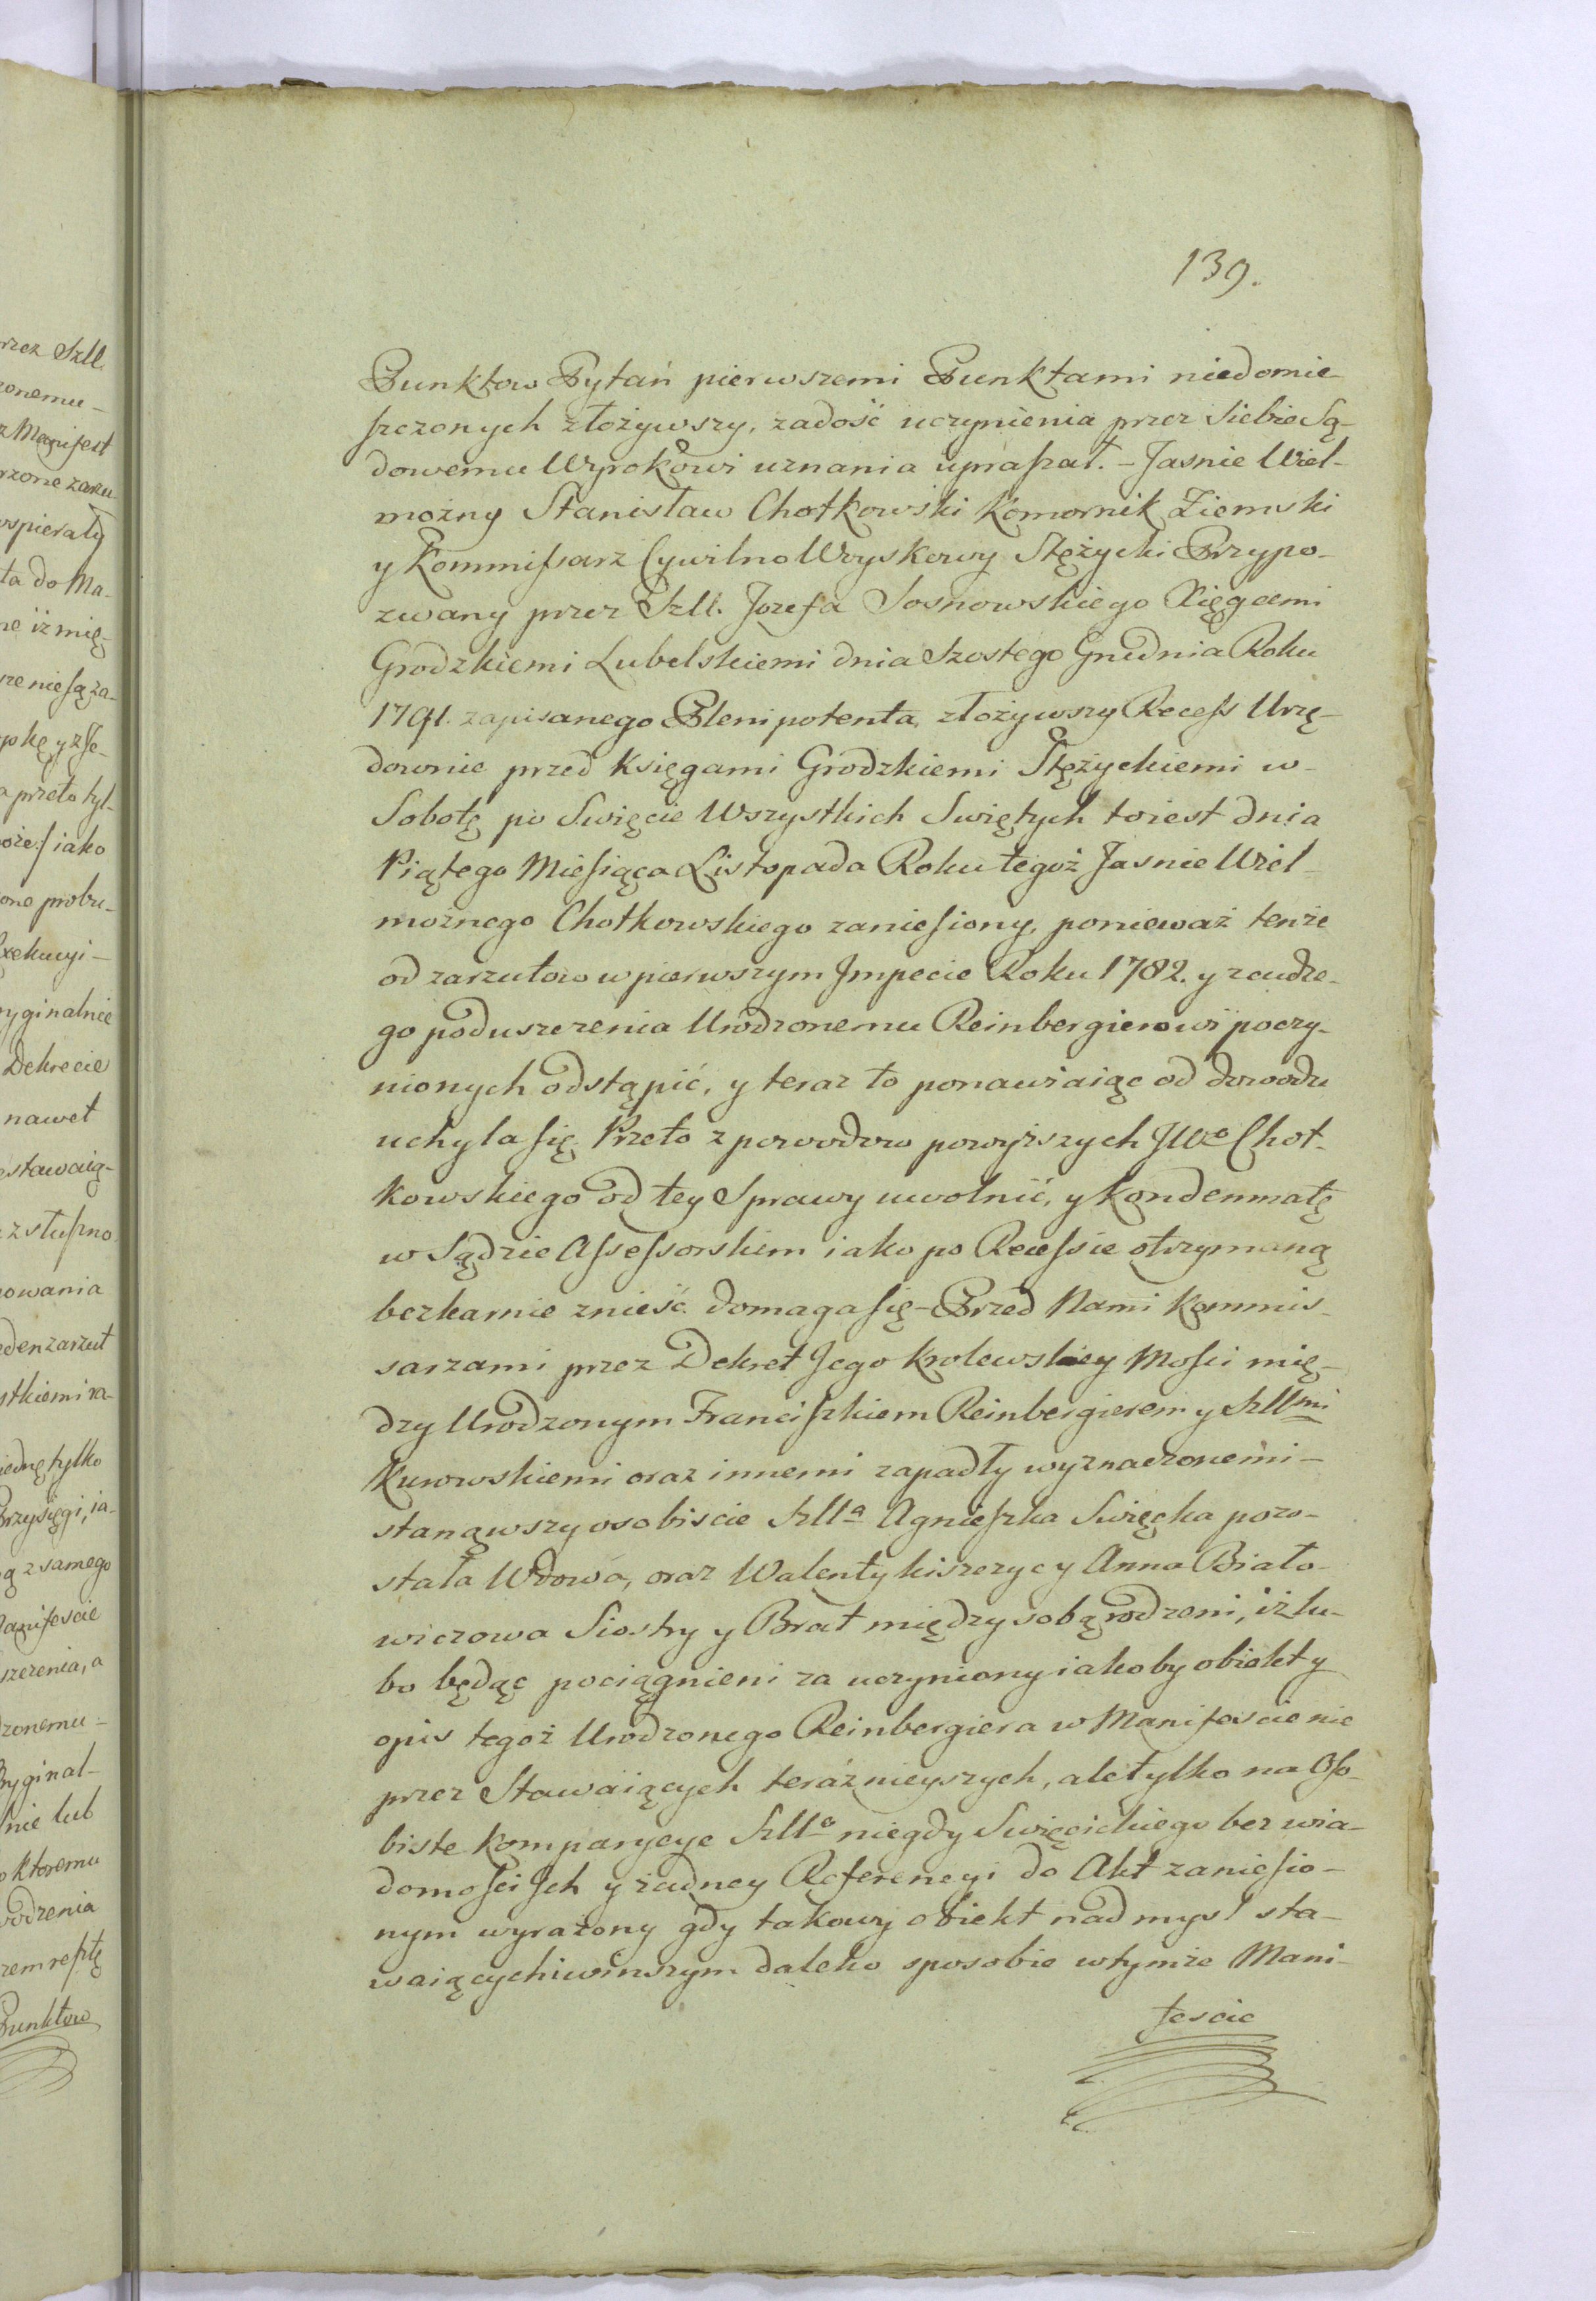 139.
Punktow Pytań pierwszemi Punktami niedomie
szczonych złożywszy, zadość uczynienia przez Siebie Są-
dowemu Wyrokowi uznania upraszał. - Jasnie Wiel-
możny Stanisław Chotkowski Komornik Ziemski
y Kommissarz Cywilno Woyskowy Stężycki Przypo-
zwany przez Szll. Jozefa Sosnowskiego Xięgami
Grodzkiemi Lubelskiemi dnia Szostego Grudnia Roku
1791. zapisanego Plenipotenta, złożywszy Recess Urzę-
downie przed Księgami Grodzkiemi Stężyckiemi w-
Sobotę po Swięcie Wszystkich Swiętych toiest dnia
Piątego Miesiąca Listopada Roku tegoż Jasnie Wiel-
możnego Chotkowskiego zaniesiony, ponieważ tenże
od zarzutow w pierwszym Jmpecie Roku 1782. y z cudze-
go poduszczenia Urodzonemu Reinbergierowi poczy-
nionych odstąpić, y teraz to ponawiaiąc od dowodu
uchyla się. Przeto z powodow powyższych JWo Chot-
kowskiego od tey Sprawy uwolnić, y Kondemnatę
w Sądzie Assessorskim iako po Recessie otrzymaną
bezkarnie znieść domaga się - Przed Nami Kommis-
sarzami przez Dekret Jego Krolewskiey Mości mię-
dzy Urodzonym Franciszkiem Reinbergierem y Szllmi
Kurowskiemi oraz innemi zapadły wyznaczonemi -
stanąwszy osobiscie Szlla Agnieszka Swięcka pozo-
stała Wdowa, oraz Walenty Kiszczyc y Anna Biało-
wiczowa Siostry y Brat między sobą rodzeni, iż lu-
bo będąc pociągnieni za uczyniony iakoby obiekt y
opis tegoż Urodzonego Reinbergiera w Manifescie nie
przez Stawaiących teraźnieyszych, ale tylko na Oso-
biste Kompanycye Szllo niegdy Swięcickiego bez wia-
domości Jch y żadney Referencyi do Akt zaniesio-
nym wyrażony gdy takowy obiekt nad mysl sta-
waiących i w inszym daleko sposobie w tymże Mani-
fescie
rzez Szll.
zonemu -
z Manifest
rzone zarzu
wspierały
ta do Ma-
ne iż mię-
re nie są za-
a przeto tyl-
oże / iako
one probu-
Exekucyi -
ryginalnie
Dekrecie
nawet
estawaią-
z słuszno
owania
eden zarzut
stkiemi ra-
iednę tylko
Przysięgi, ia-
ą z samego
Manifescie
szczenia, a
dzonemu -
Oryginal-
nie lub
o ktoremu
wodzenia
Punktow